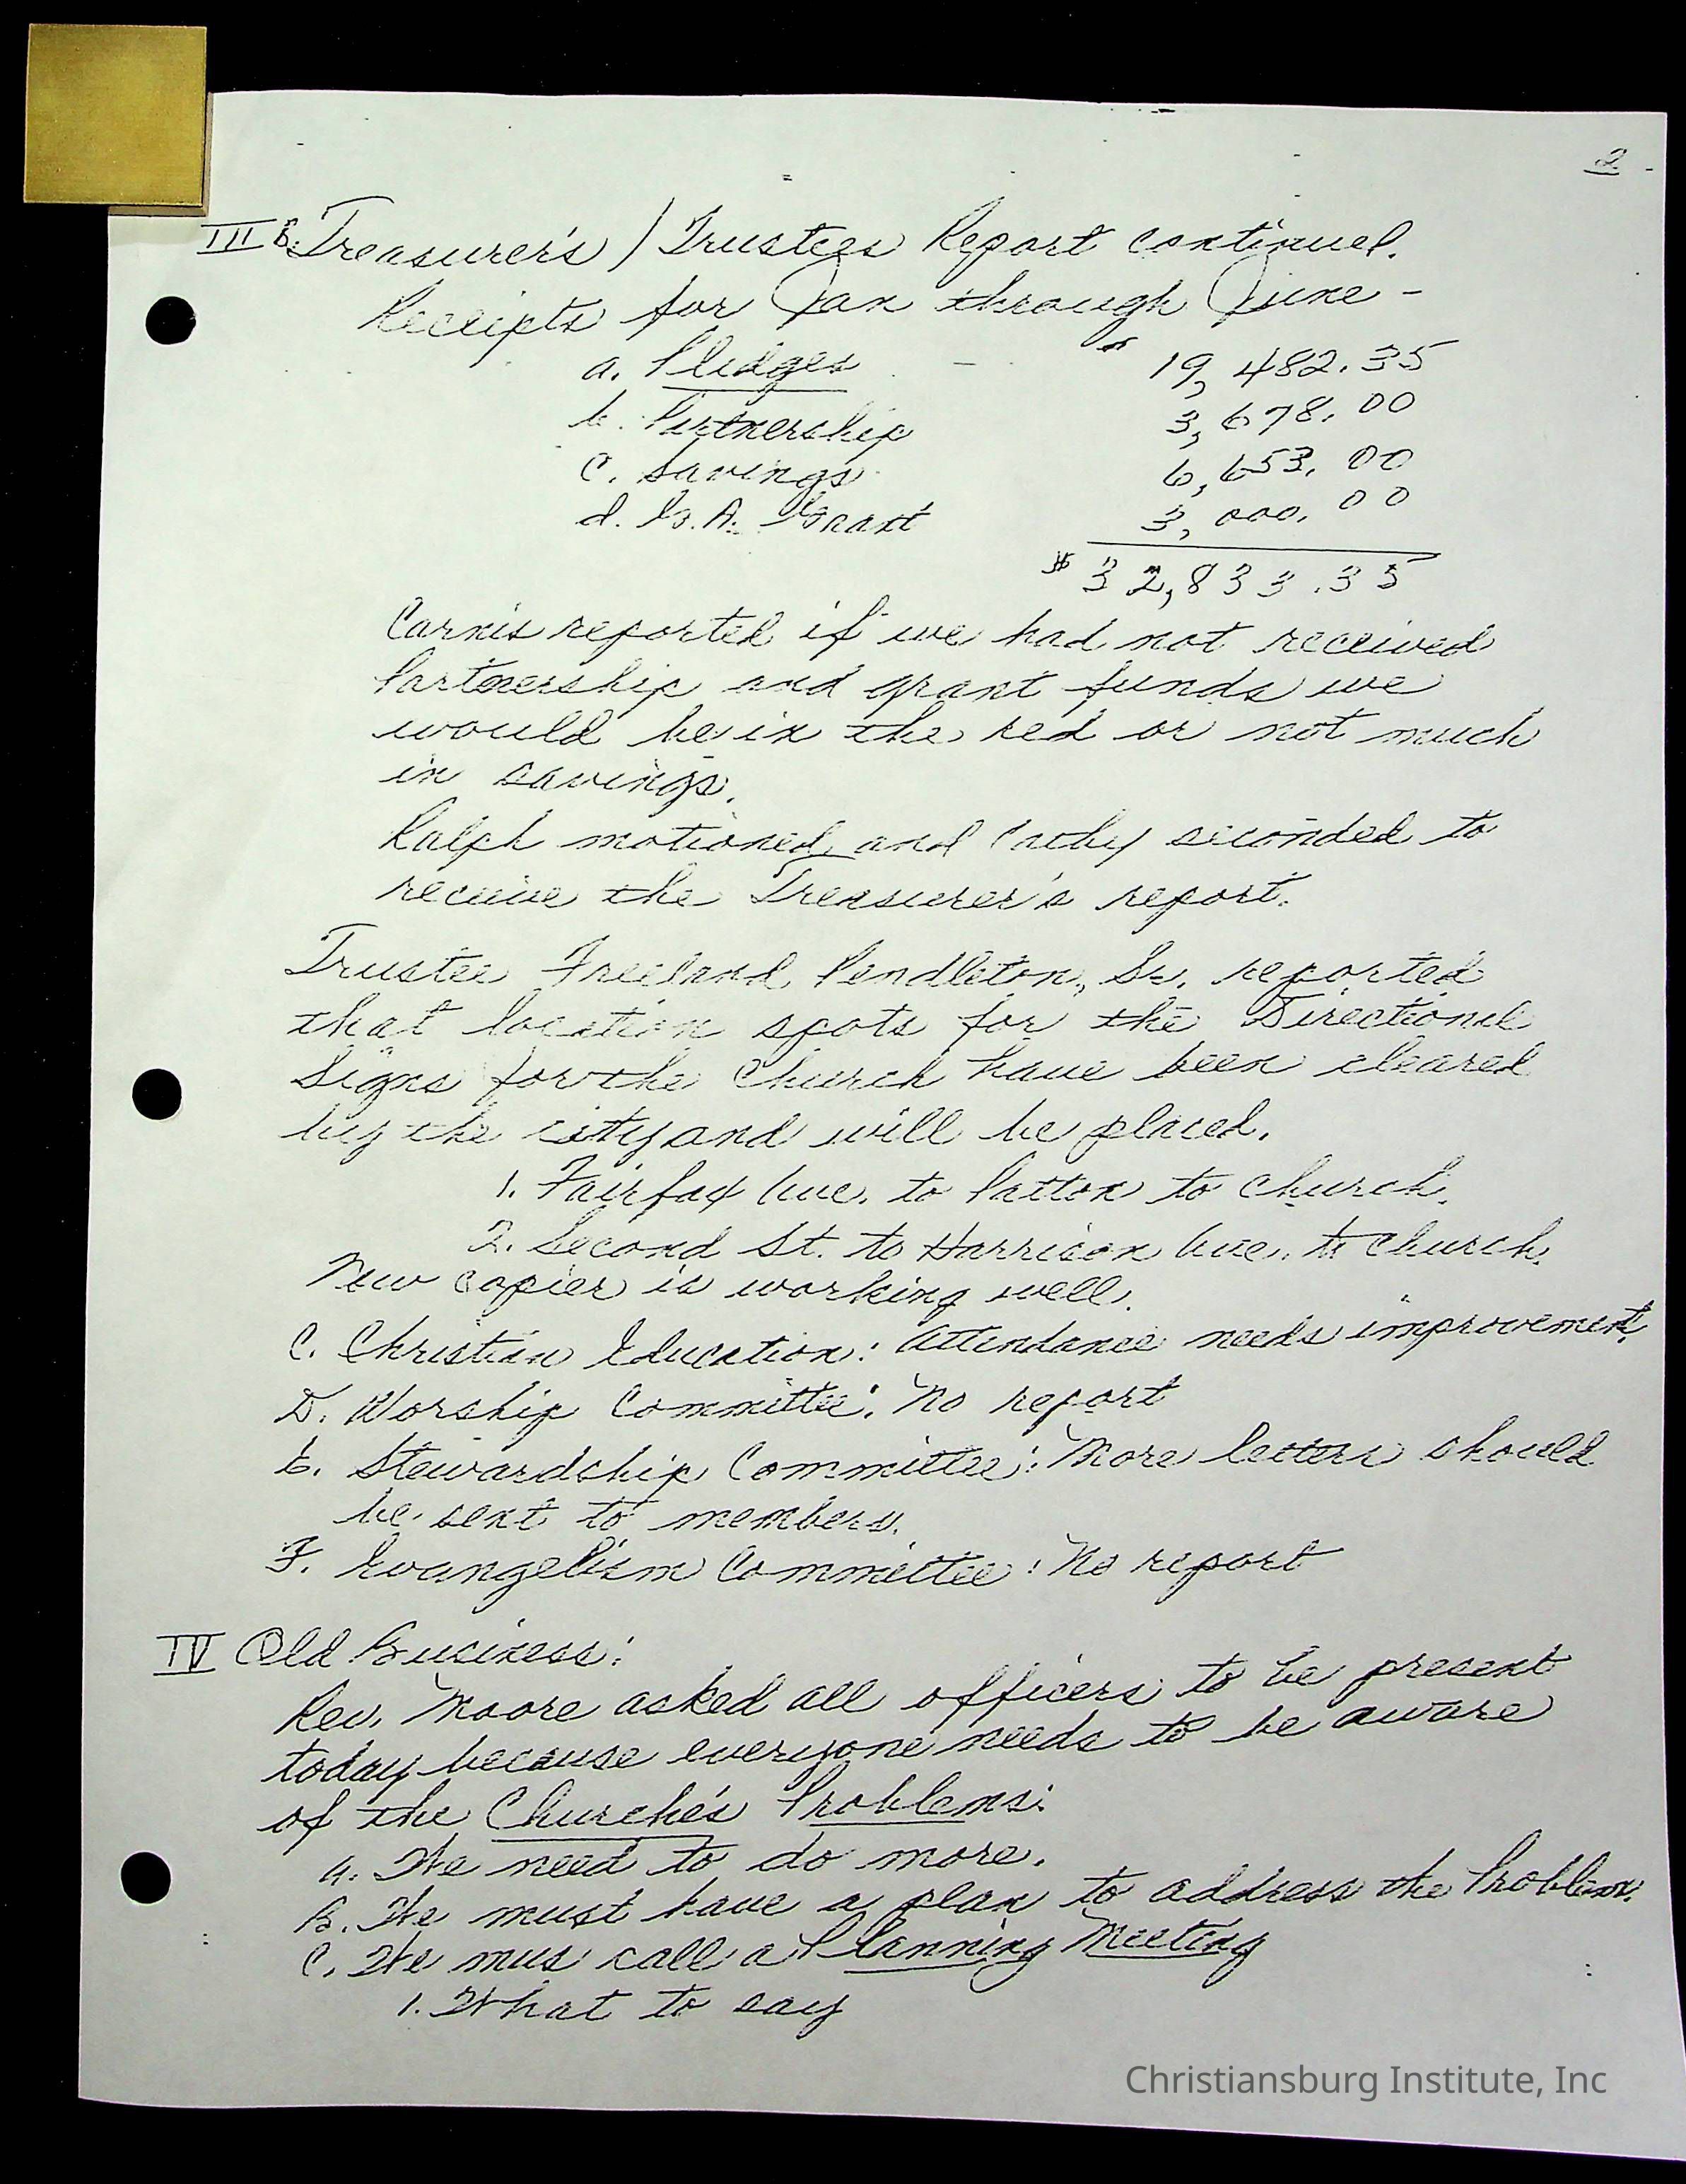 2
III B. Treasurer's / Trustees Report continued.
Receipts for Jan through June -
a. Pledges - $ 19,482.35
b. Partnership 3,678.00
c. Savings 6,653.00
d. G.A. Grant 3,000.00
$ 32,833.35
Carnis reported if we had not received
Partnership and grant funds we
would be in the red or not much
in savings.
Ralph motioned and Cathy seconded to
receive the Treasurer's report.
Trustee Freeland Pendleton, Sr. reported
that location spots for the Directional
Signs for the Church have been cleared
by the city and will be placed.
1. Fairfax Ave. to Patton to Church.
2. Second St. to Harrison Ave. to Church.
New copier is working well.
C. Christian Education: Attendance needs improvement.
D. Worship Committee: No report
E. Stewardship Committee: More letters should
be sent to members.
F. Evangelism Committee: No report
IV Old Business:
Rev. Moore asked all officers to be present
today because everyone needs to be aware
of the Churche's Problems:
a. We need to do more.
B. We must have a plan to address the Problem.
C. We mus call a Planning Meeting
1. What to say
Christiansburg Institute, Inc